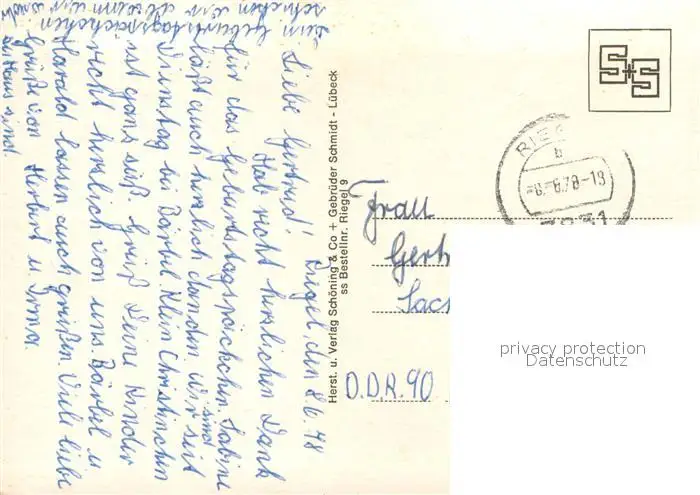 Riegel, den 8.6.78
Liebe Gertrud!
Hab recht herzlichen Dank
für das Geburtstagspäckchen. Sabine
läßt auch herzlich danken. Wir sind seit
Dienstag bei Bärbel. Klein Christinchen
ist ganz süß. Grüß Deine Kinder
recht herzlich von uns. Bärbel u.
Harald lassen auch grüßen. Viele liebe
Grüße von Herbert u. Irma.
Dein Geburtstagspäckchen
schicken wir ab wenn wir wieder
zu Haus sind.
Herst. u. Verlag Schöning & Co + Gebrüder Schmidt - Lübeck
ss Bestellnr. Riegel 9
S+S
RIE
b
-8.-6.78-18
7831
Frau
Gert
Sacs
D.D.R. 90
privacy protection
Datenschutz